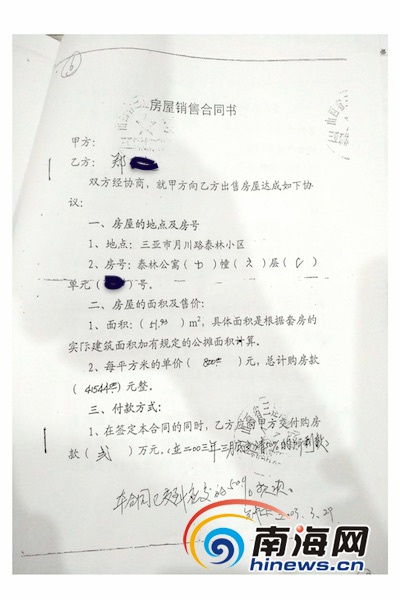 6
房屋销售合同书
甲方：
乙方：郑
双方经协商，就甲方向乙方出售房屋达成如下协
议：
一、房屋的地点及房号
1、地点：三亚市月川路泰林小区
2、房号：泰林公寓（ ）幢（ ）层（ ）
单元（ ）号。
二、房屋的面积及售价：
1、面积：（51.93）m²，具体面积是根据套房的
实际建筑面积加有规定的公摊面积计算。
2、每平方米的单价（800）元，总计购房款
（41544）元整。
三、付款方式：
1、在签定本合同的同时，乙方应向甲方交付购房
款（贰）万元。
本合同已交到应交的50%
2003.3.29
南海网
hinews.cn